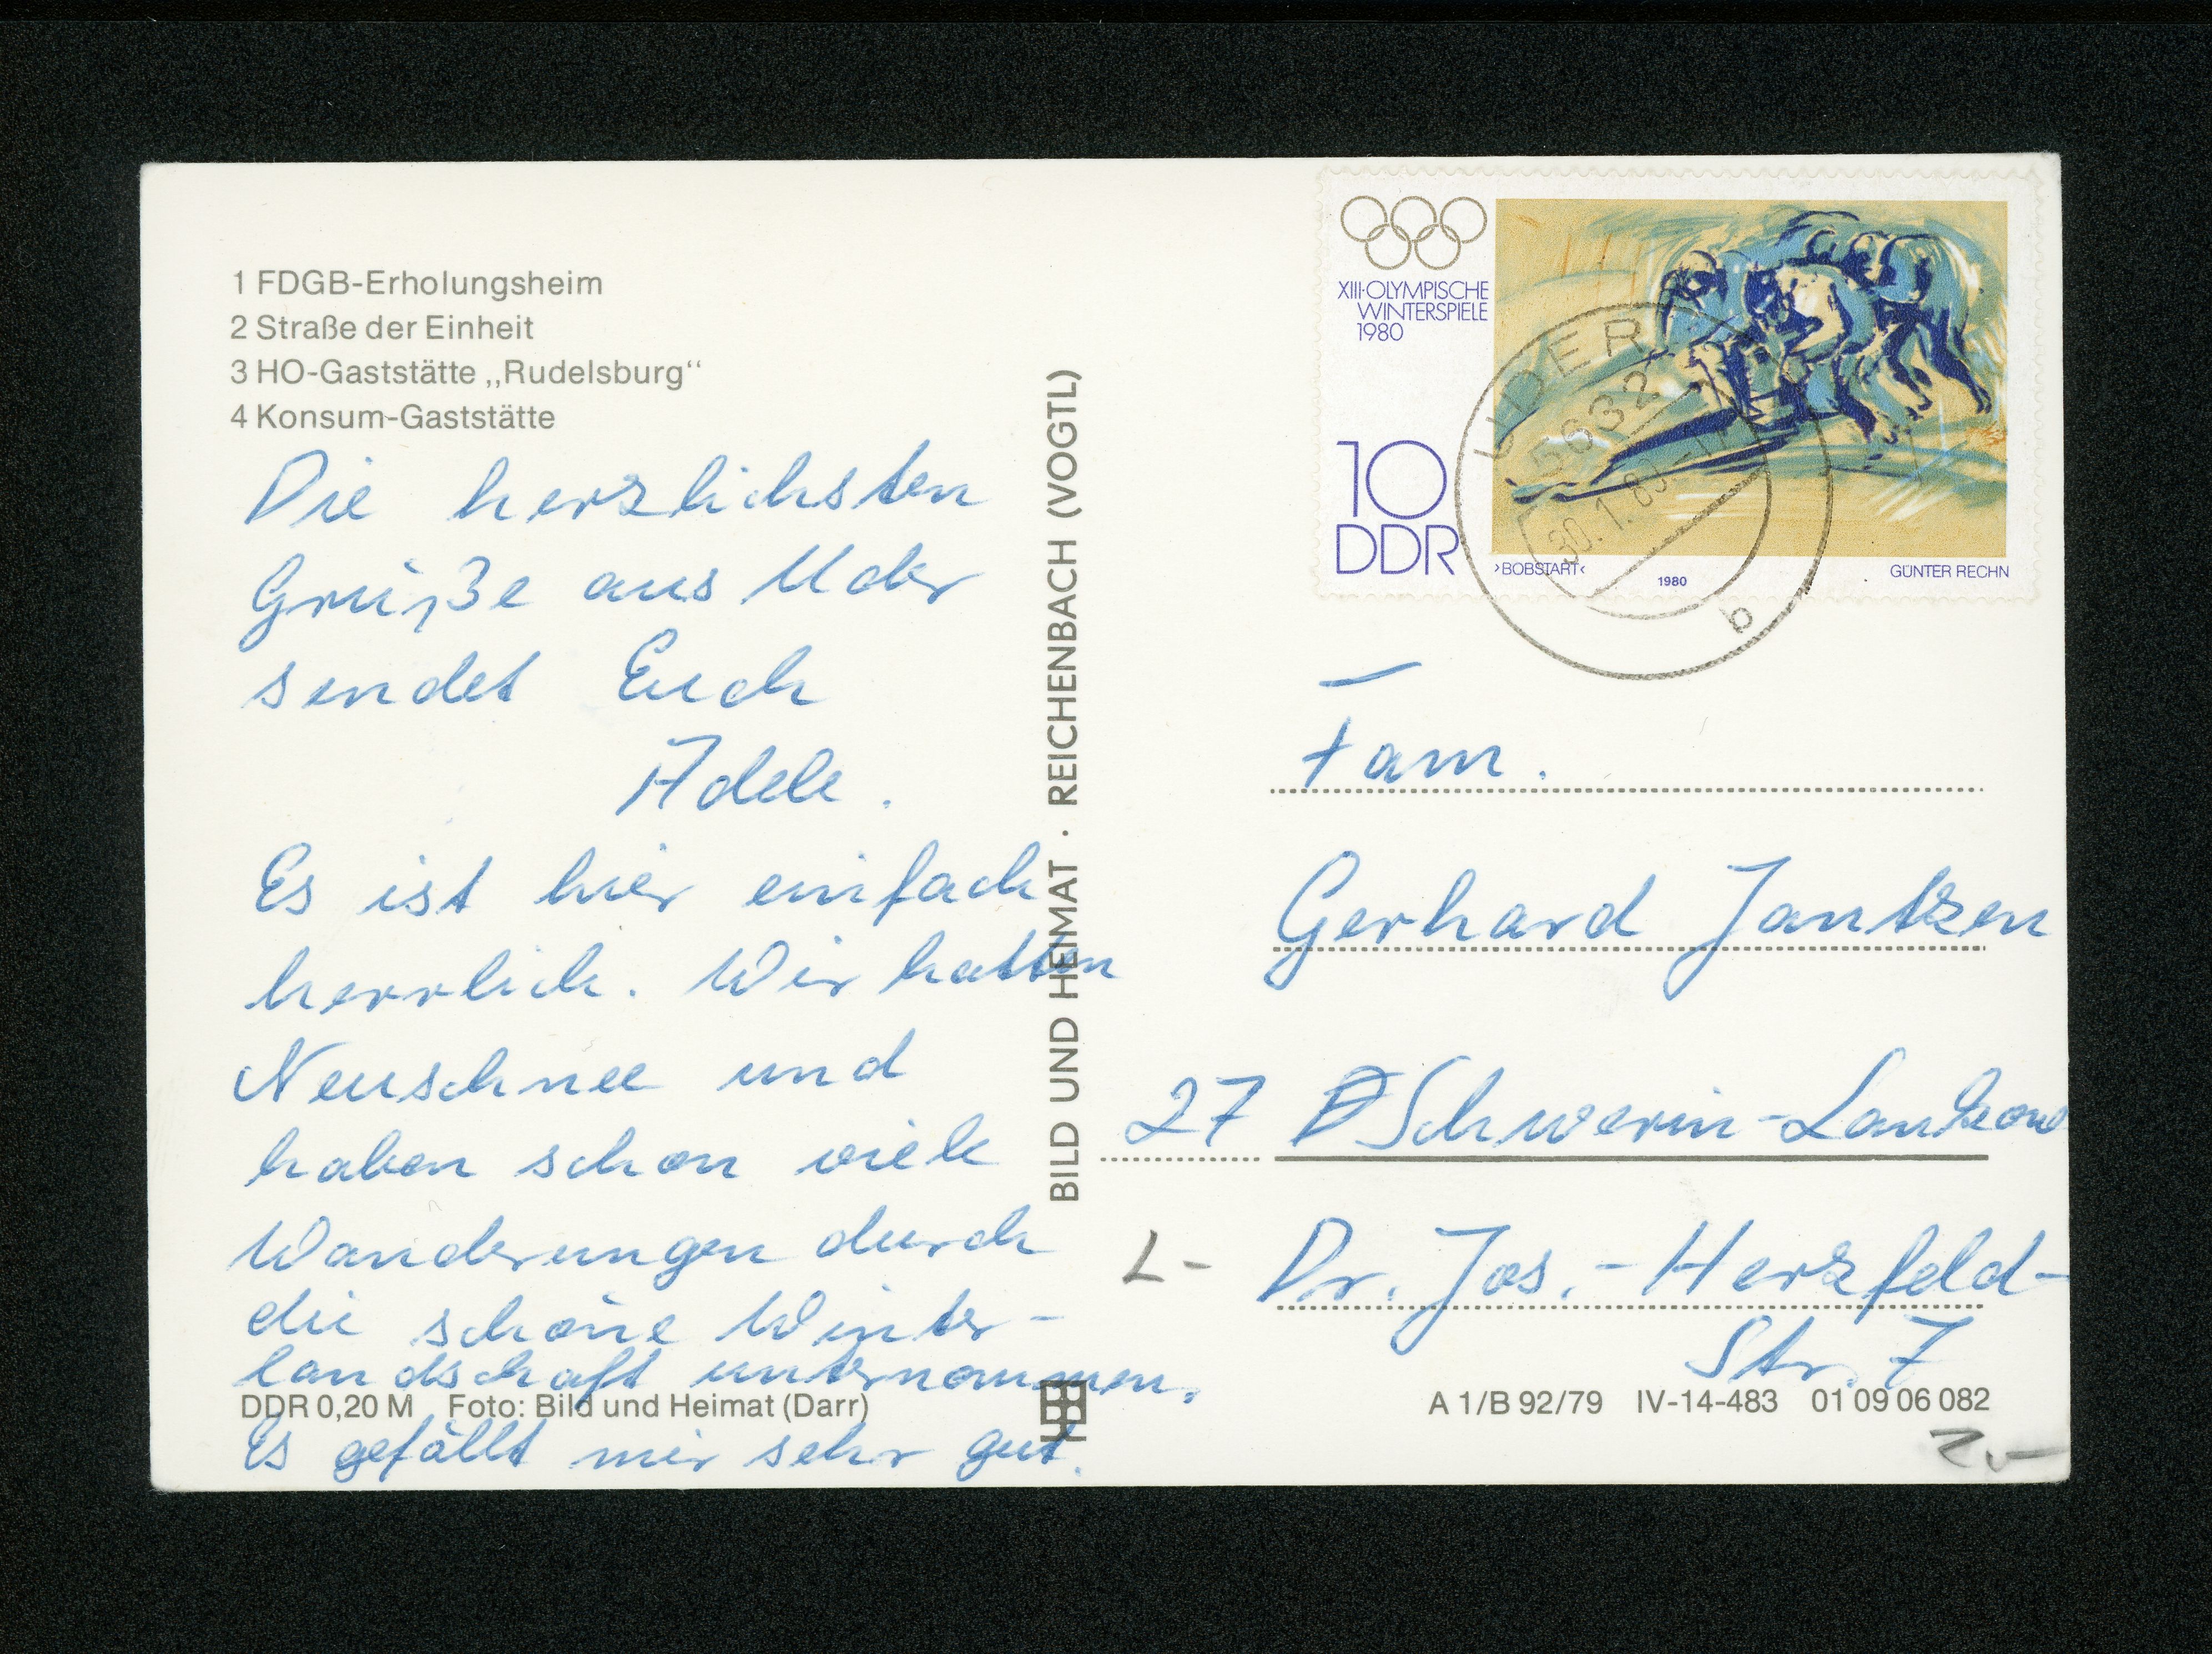 1 FDGB-Erholungsheim
2 Straße der Einheit
3 HO-Gaststätte „Rudelsburg“
4 Konsum-Gaststätte
Die herzlichsten
Grüße aus Uder
sendet Euch
Adele.
Es ist hier einfach
herrlich. Wir hatten
Neuschnee und
haben schon viele
Wanderungen durch
die schöne Winter-
landschaft unternommen.
Es gefällt mir sehr gut.
DDR 0,20 M Foto: Bild und Heimat (Darr)
BILD UND HEIMAT · REICHENBACH (VOGTL)
XIII·OLYMPISCHE
WINTERSPIELE
1980
10
DDR
›BOBSTART‹
1980
GÜNTER RECHN
UDER
5632
30.1.
b
Fam.
Gerhard Jantzen
27 Schwerin-Lankow
L-
Dr. Jos.-Herzfeld-
Str. 7
A 1/B 92/79 IV-14-483 01 09 06 082